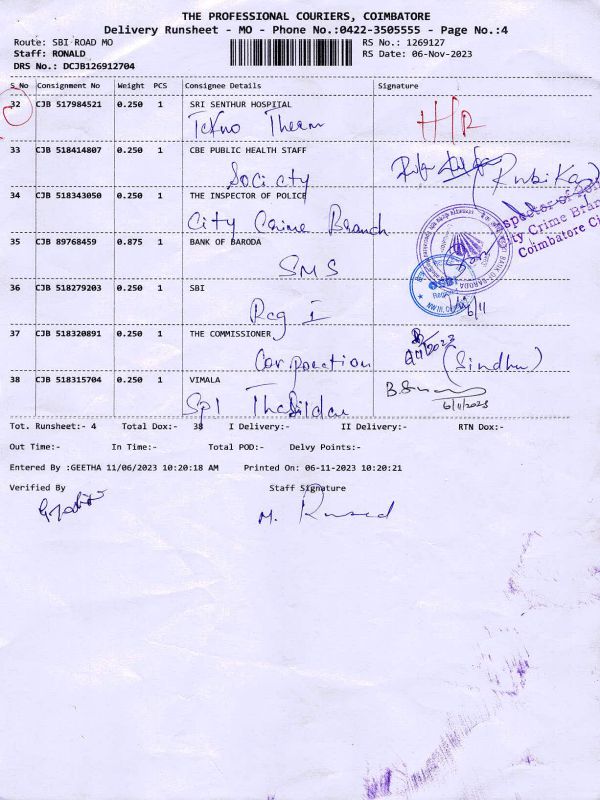 THE PROFESSIONAL COURIERS, COIMBATORE
Delivery Runsheet - MO - Phone No.:0422-3505555 - Page No.:4
Route: SBI ROAD MO RS No.: 1269127
Staff: RONALD RS Date: 06-Nov-2023
DRS No.: DCJB126912704
S.No Consignment No Weight PCS Consignee Details Signature
32 CJB 517984521 0.250 1 SRI SENTHUR HOSPITAL
Tekno Therm
33 CJB 518414807 0.250 1 CBE PUBLIC HEALTH STAFF
Society
34 CJB 518343050 0.250 1 THE INSPECTOR OF POLICE
City Crime Branch
ty Crime Bran
Coimbatore Ci
35 CJB 89768459 0.875 1 BANK OF BARODA
SMS
BANK OF BARODA
36 CJB 518279203 0.250 1 SBI
Reg I
6/11
37 CJB 518320891 0.250 1 THE COMMISSIONER
Corporation (Sindhu)
38 CJB 518315704 0.250 1 VIMALA
Spl Thasildar
6/11/2023
Tot. Runsheet:- 4 Total Dox:- 38 I Delivery:- II Delivery:- RTN Dox:-
Out Time:- In Time:- Total POD:- Delvy Points:-
Entered By :GEETHA 11/06/2023 10:20:18 AM Printed On: 06-11-2023 10:20:21
Verified By Staff Signature